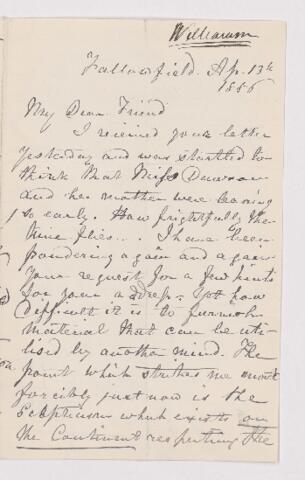 Williamson
Fallowfield. Ap. 13th
1886
My Dear Friend
I received your letter
yesterday and was startled to
think that Miss Dawson
and her mother were leaving
so early. How frightfully the
time flies... I have been
pondering again and again
your request for a few hints
for your address. Yet how
difficult it is to furnish
material that can be uti-
lised by another mind. The
point which strikes me most
forcibly just now is the
scepticism which exists on
the Continent respecting the